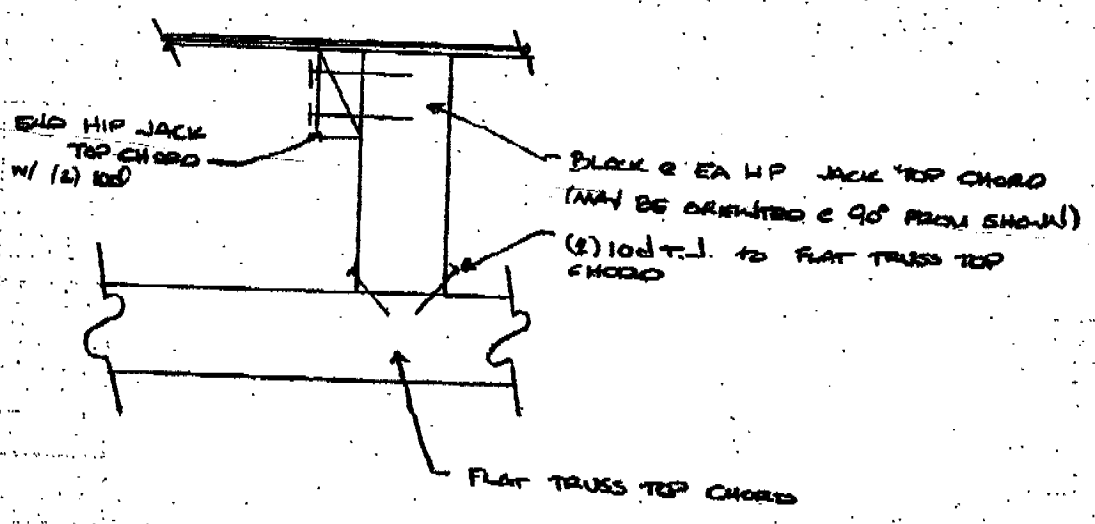 END HIP JACK
TOP CHORD
W/ (2) 10d
BLOCK @ EA HIP JACK TOP CHORD
(MAY BE ORIENTED @ 90° FROM SHOWN)
(2) 10d T.J. to FLAT TRUSS TOP
CHORD
FLAT TRUSS TOP CHORD